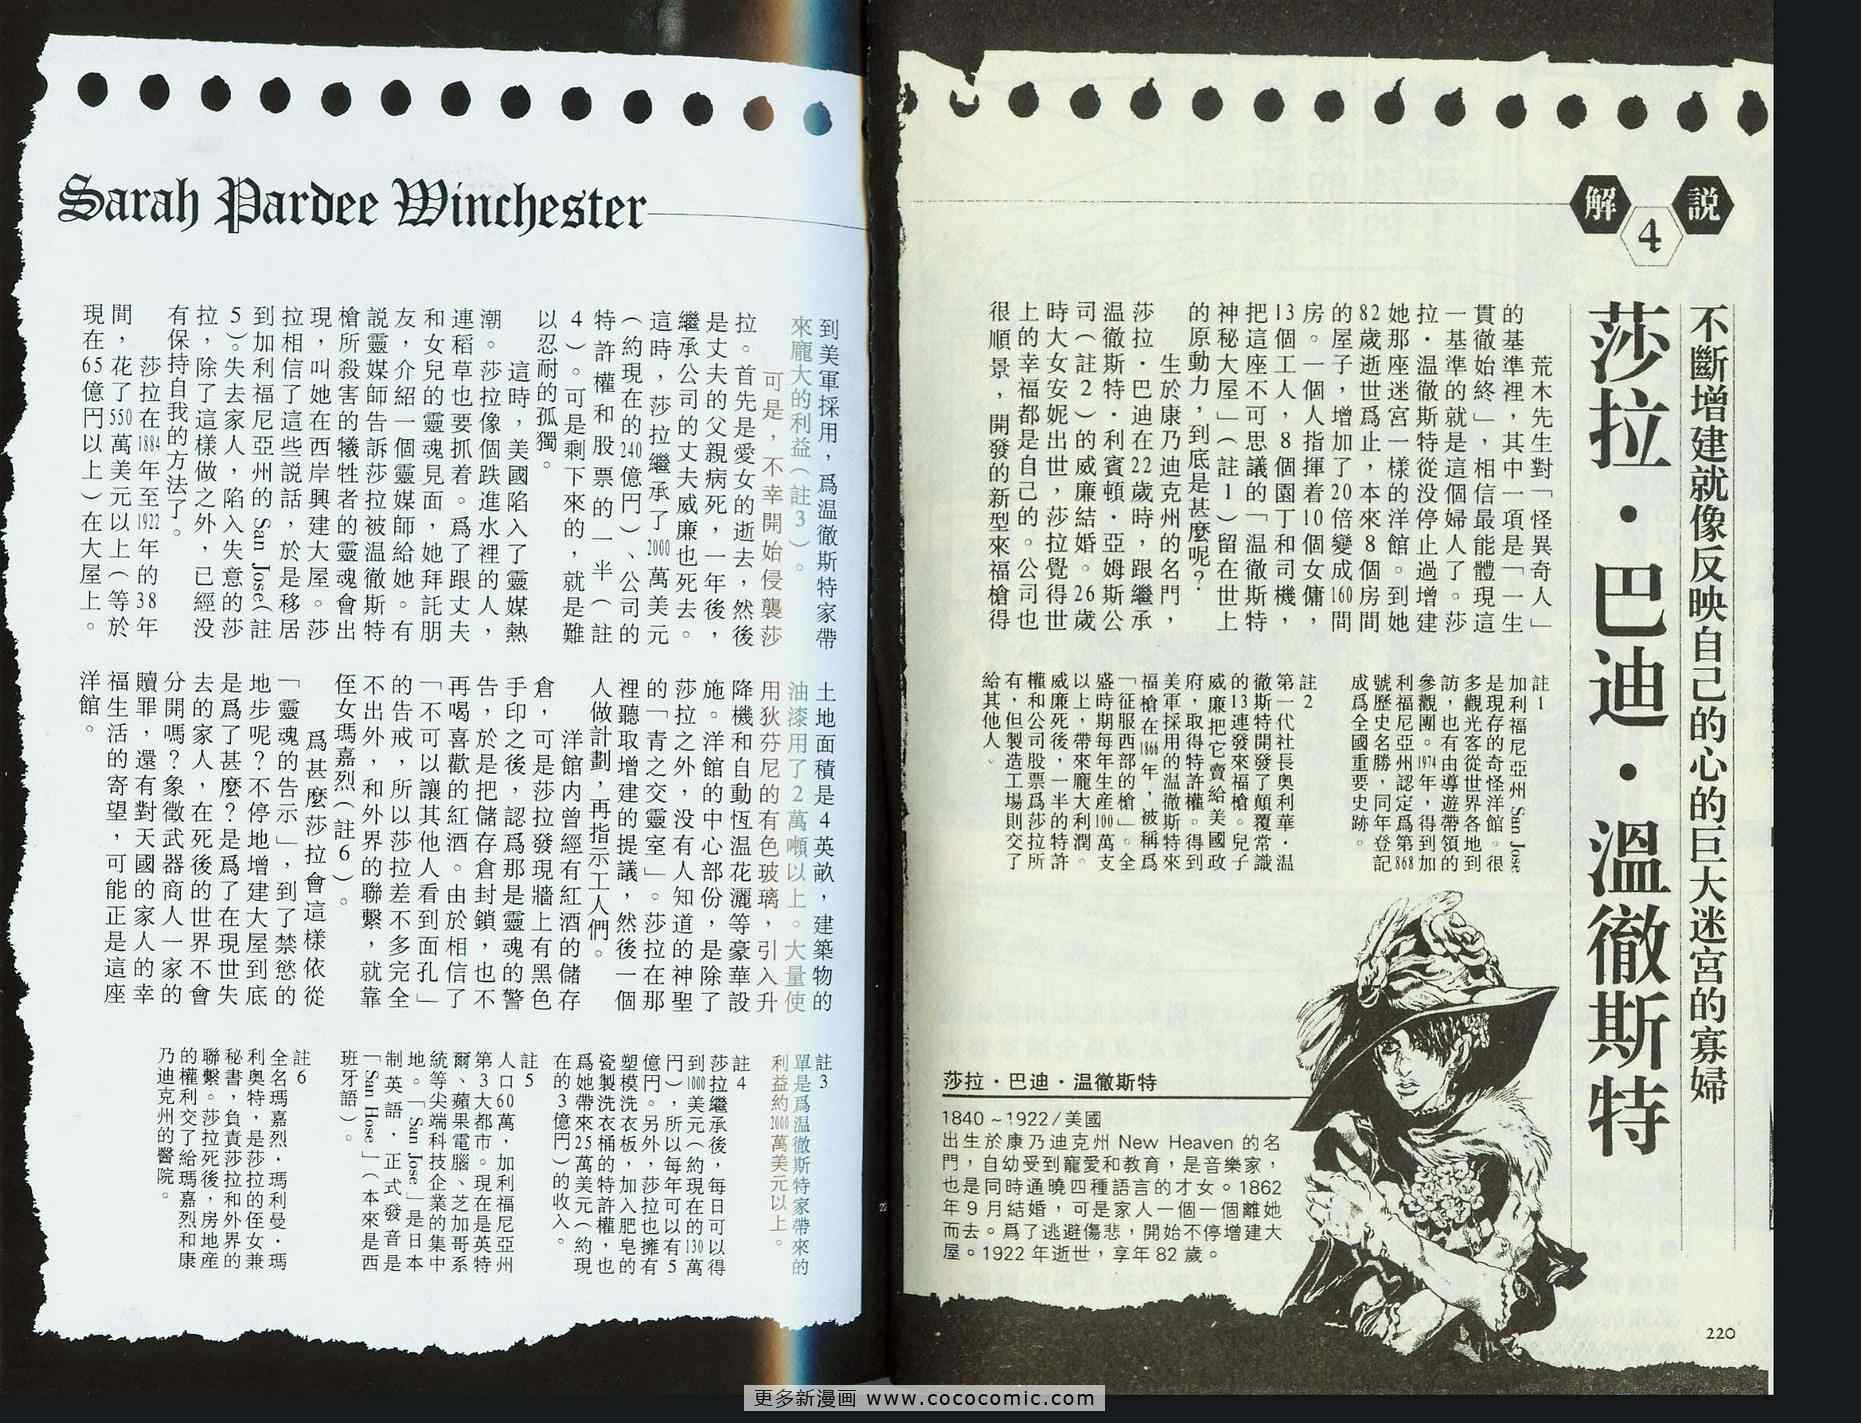 解說4
不斷增建就像反映自己的心的巨大迷宮的寡婦
莎拉・巴迪・溫徹斯特
荒木先生對「怪異奇人」
的基準裡，其中一項是「一生
貫徹始終」，相信最能體現這
一基準的就是這個婦人了。莎
拉・温徹斯特從没停止過增建
她那座迷宮一樣的洋館。到她
82歲逝世爲止，本來8個房間
的屋子，增加了20倍變成160間
房。一個人指揮着10個女傭，
13個工人，8個園丁和司機，
把這座不可思議的「温徹斯特
神秘大屋」（註1）留在世上
的原動力，到底是甚麼呢？
生於康乃迪克州的名門，
莎拉・巴迪在22歲時，跟繼承
温徹斯特・利賓頓・亞姆斯公
司（註2）的威廉結婚。26歲
時大女女安妮出世，莎拉覺得世
上的幸福都是自己的。公司也
很順景，開發的新型來福槍得
註1
加利福尼亞州 San Jose
是現存的奇怪洋館。很
多觀光客從世界各地到
訪，也有由導遊帶領的
參觀團。1974年，得到加
利福尼亞州認定爲第868
號歷史名勝，同年登記
成爲全國重要史跡。
註2
第一代社長奧利華・温
徹斯特開發了顛覆常識
的13連發來福槍。兒子
威廉把它賣給美國政
府，取得特許權。得到
美軍採用的温徹斯特來
福槍在1866年，被稱爲
「征服西部的槍」。全
盛時期每年生産100萬支
以上，帶來龐大利潤。
威廉死後，一半的特許
權和公司股票爲莎拉所
有，但製造工場則交了
給其他人。
莎拉・巴迪・温徹斯特
1840～1922/美國
出生於康乃迪克州 New Heaven 的名
門，自幼受到寵愛和教育，是音樂家，
也是同時通曉四種語言的才女。1862
年9月結婚，可是家人一個一個離她
而去。爲了逃避傷悲，開始不停增建大
屋。1922年逝世，享年82歲。
220
Sarah Pardee Winchester
到美軍採用，爲温徹斯特家帶
來龐大的利益（註3）。
可是，不幸開始侵襲莎
拉。首先是愛女的逝去，然後
是丈夫的父親病死，一年後，
繼承公司的丈夫威廉也死去。
這時，莎拉繼承了2000萬美元
（約現在的240億円）、公司的
特許權和股票的一半（註
4）。可是剩下來的，就是難
以忍耐的孤獨。
這時，美國陷入了靈媒熱
潮。莎拉像個跌進水裡的人，
連稻草也要抓着。爲了跟丈夫
和女兒的靈魂見面，她拜託朋
友，介紹一個靈媒師給她。有
説靈媒師告訴莎拉被温徹斯特
槍所殺害的犧牲者的靈魂會出
現，叫她在西岸興建大屋。莎
拉相信了這些説話，於是移居
到加利福尼亞州的 San Jose（註
5）。失去家人，陷入失意的莎
拉，除了這樣做之外，已經没
有保持自我的方法了。
莎拉在1884年至1922年的38年
間，花了550萬美元以上（等於
現在65億円以上）在大屋上。
土地面積是4英畝，建築物的
油漆用了2萬噸以上。大量使
用狄芬尼的有色玻璃，引入升
降機和自動恆温花灑等豪華設
施。洋館的中心部份，是除了
莎拉之外，没有人知道的神聖
的「青之交靈室」。莎拉在那
裡聽取增建的提議，然後一個
人做計劃，再指示工人們。
洋館内曾經有紅酒的儲存
倉，可是莎拉發現牆上有黑色
手印之後，認爲那是靈魂的警
告，於是把儲存倉封鎖，也不
再喝喜歡的紅酒。由於相信了
「不可以讓其他人看到面孔」
的告戒，所以莎拉差不多完全
不出外，和外界的聯繫，就靠
侄女瑪嘉烈（註6）。
爲甚麼莎拉會這樣依從
「靈魂的告示」，到了禁慾的
地步呢？不停地增建大屋到底
是爲了甚麼？是爲了在現世失
去的家人，在死後的世界不會
分開嗎？象徵武器商人一家的
贖罪，還有對天國的家人的幸
福生活的寄望，可能正是這座
洋館。
註3
單是爲温徹斯特家帶來的
利益約2000萬美元以上。
註4
莎拉繼承後，每日可以得
到1000美元（約現在的130萬
円），所以每年可以有5
億円。另外，莎拉也擁有
塑模洗衣板，加入肥皂的
瓷製洗衣桶的特許權，也
爲她帶來25萬美元（約現
在的3億円）的收入。
註5
人口60萬，加利福尼亞州
第3大都市。現在是英特
爾、蘋果電腦、芝加哥系
統等尖端科技企業的集中
地。「San Jose」是日本
制英語，正式發音是
「San Hose」（本來是西
班牙語）。
註6
全名瑪嘉烈・瑪利曼・瑪
利奧特，是莎拉的侄女兼
秘書，負責莎拉和外界的
聯繫。莎拉死後，房地産
的權利交了給瑪嘉烈和康
乃迪克州的醫院。
更多新漫画 www.cococomic.com